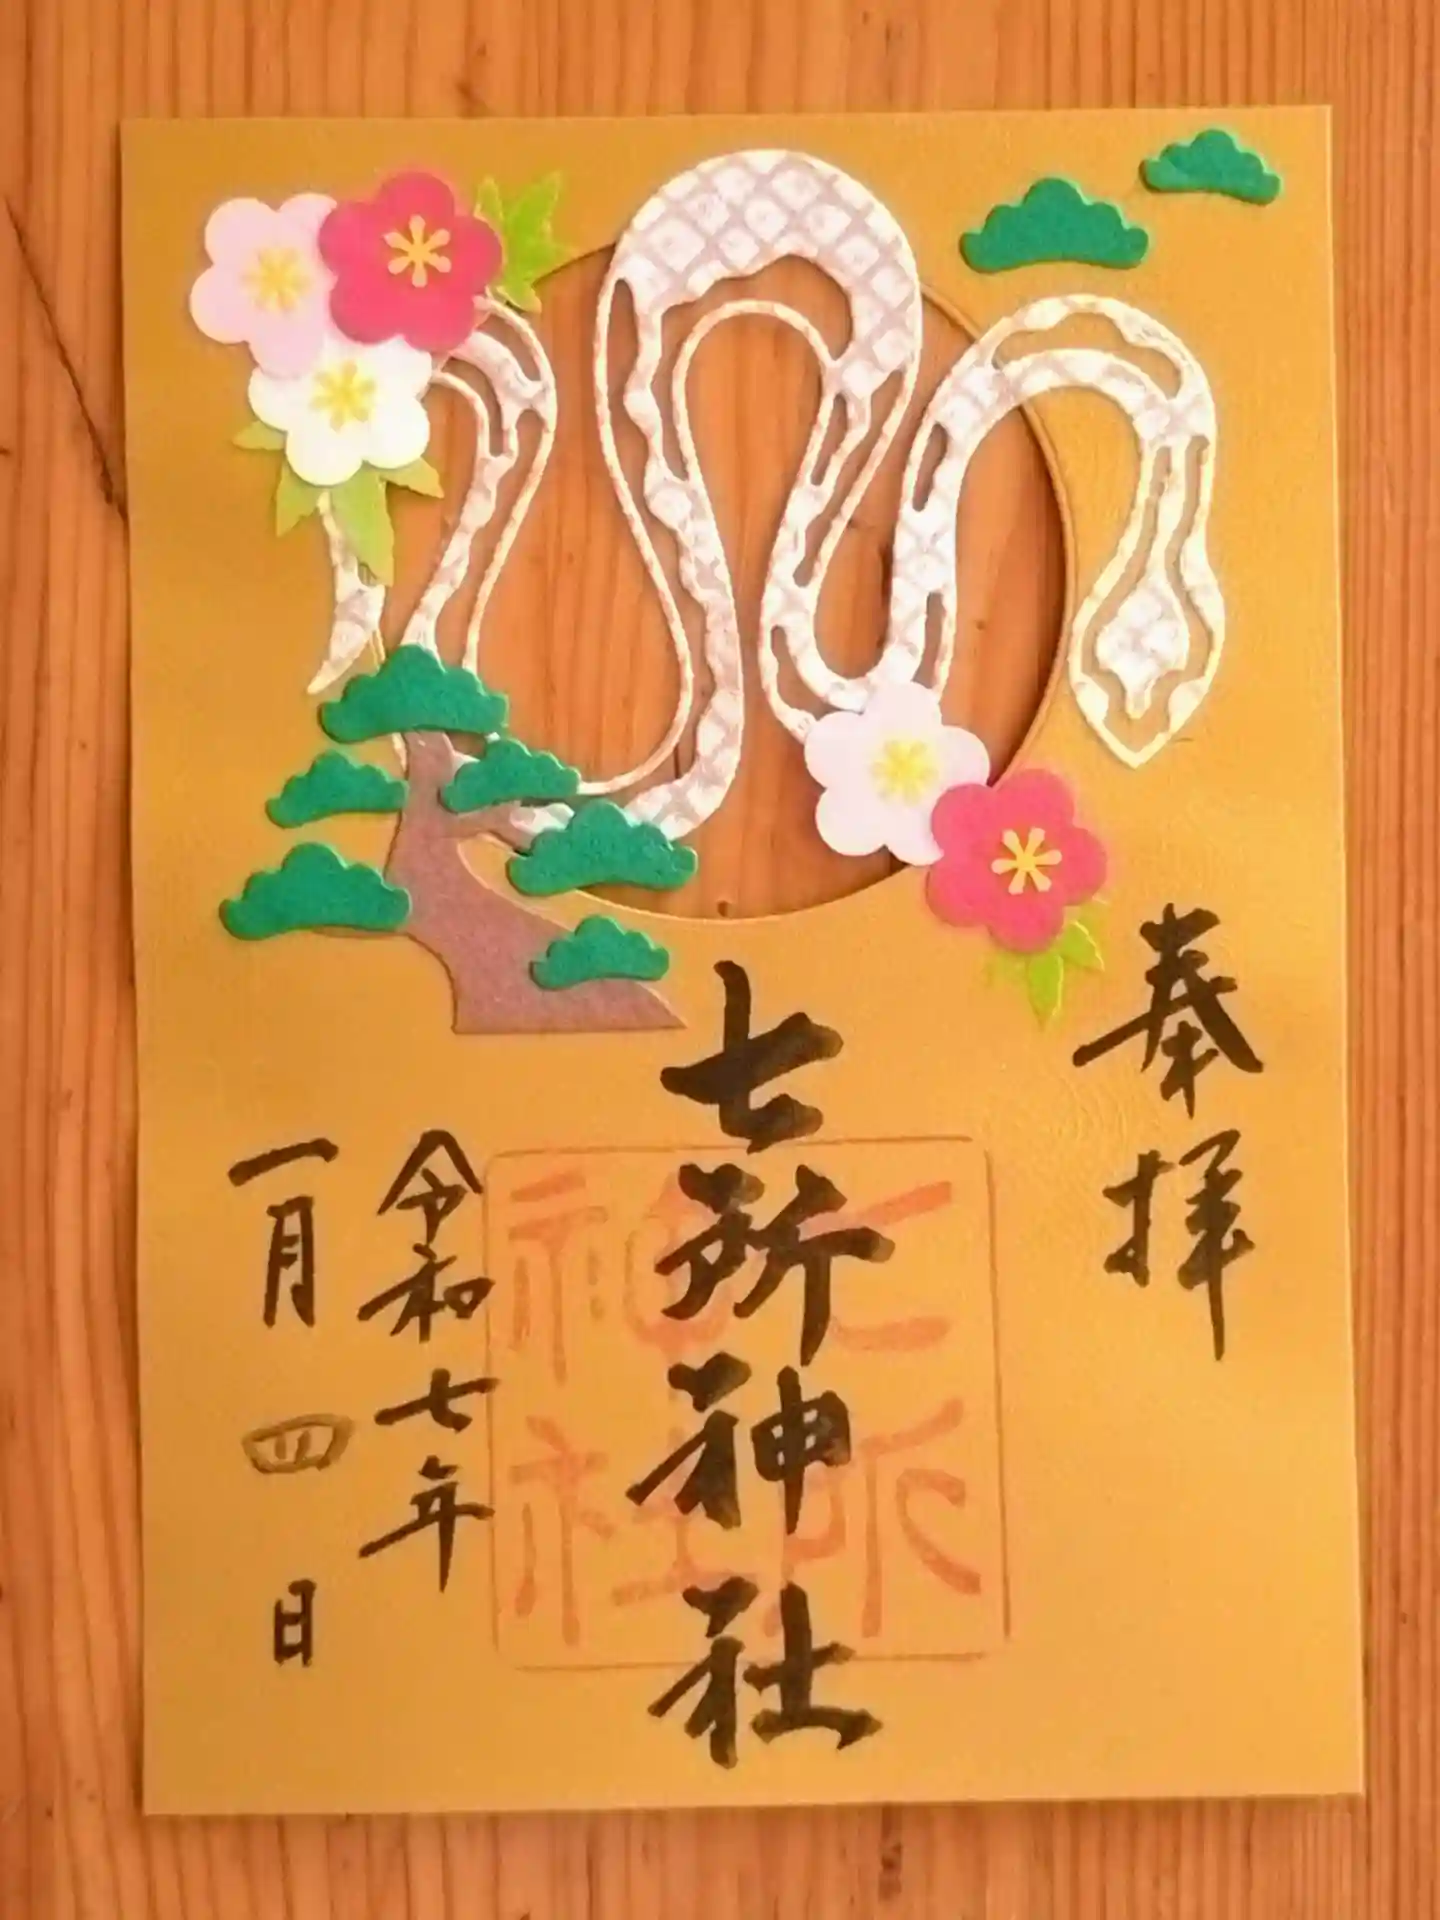 奉拝
七所神社
七所神社
令和七年
一月四日